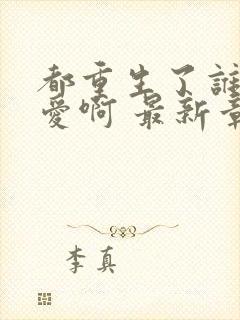 都重生了誰
愛啊 最新章
李真